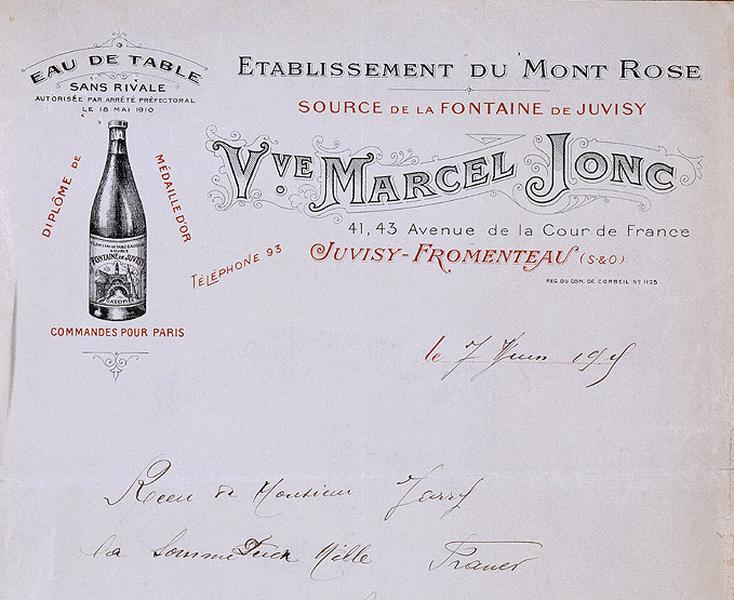 EAU DE TABLE
SANS RIVALE
AUTORISÉE PAR ARRÊTÉ PRÉFECTORAL
LE 18 MAI 1910
DIPLÔME DE
MÉDAILLE D'OR
FONTAINE DE JUVISY
COMMANDES POUR PARIS
ETABLISSEMENT DU MONT ROSE
SOURCE DE LA FONTAINE DE JUVISY
VVE MARCEL JONC
41, 43 Avenue de la Cour de France
TÉLÉPHONE 93
JUVISY-FROMENTEAU (S-&O)
REG. DU COM. DE CORBEIL Nº 1125
le 7
Recu de Monsieur Jarry
la somme Deux Mille Francs